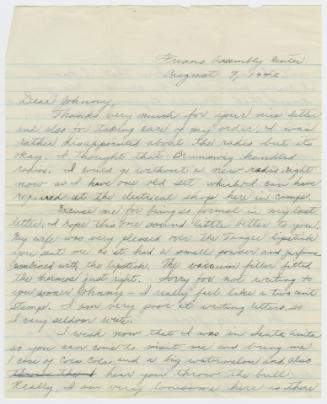 Fresno Assembly Center
August 7, 1942
Dear Johnny,
Thanks very much for your nice letter
and also for taking care of my order. I was
rather disappointed about the radio but its
okay. I thought that Brunswig handled
radios. I could go without a new radio right
now as I have one old set which I can have
repaired at the electrical shop here in camp.
Excuse me for being so formal in my last
letter. I hope this one sound little better to you!
My wife was very pleased over the Tangee lipstick
you sent me as it had a small powder and perfume
combined with the lipstick. The vacuum filler fitted
the thermos just right. Sorry for not writing to
you sooner Johnny - I really feel like a two cent
stamp. I am very poor at writing letters so
I very seldom write.
I wish now that I was in Santa Anita
so you can come to visit me and bring me
1 case of Coca Cola and a big watermelon and also
hear you throw the bull.
Really, I am very lonesome here as there